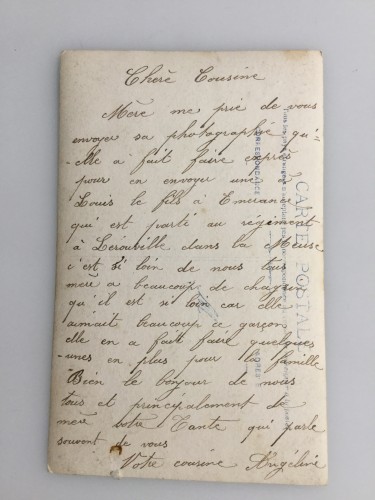 Cherè Cousine
Mère me prie de vous
envoyer sa photographie qu'
elle a fait faire exprès
pour en envoyer une à
Louis le fils à Emerance
qui est parti au régiment
à Lerouville dans la Meuse
c'est si loin de nous tous
mere a beaucoup de chagrin
qu'il est si loin car elle
aimait beaucoup ce garçon
elle en a fait faire quelques
-unes en plus pour la famille
Bien le bonjour de nous
tous et principalement de
mère votre Tante qui parle
souvent de vous
Votre cousine Angéline
CARTE POSTALE
CORRESPONDANCE